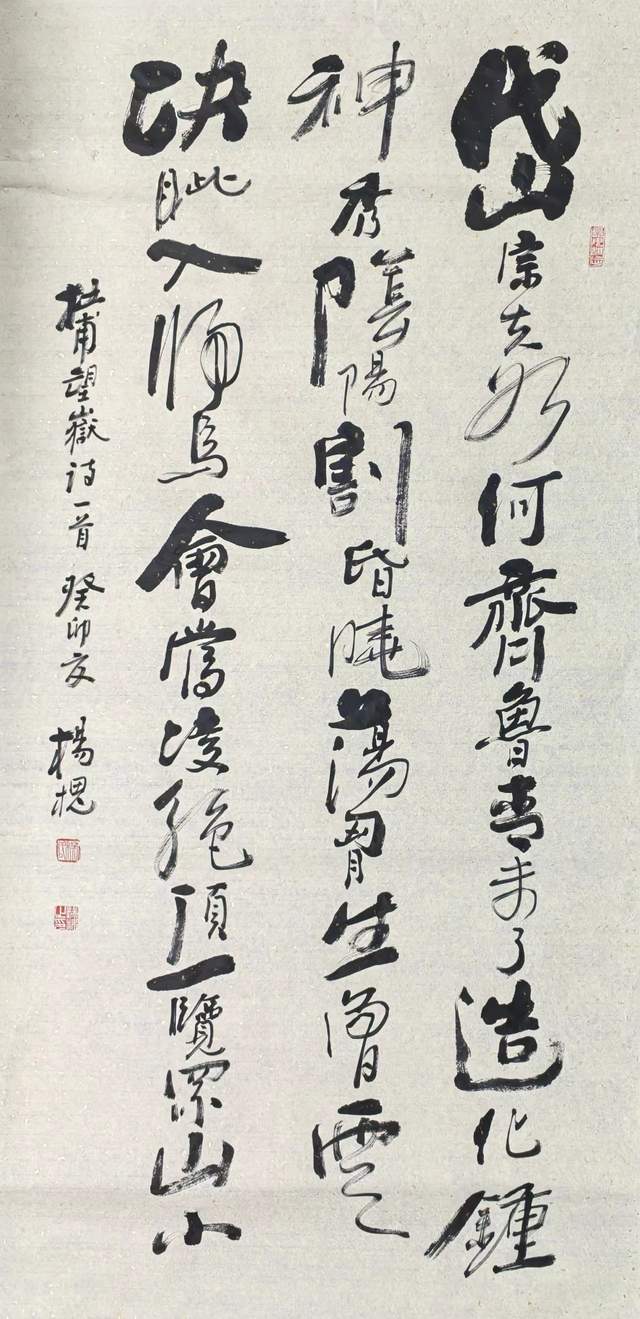 岱宗夫如何齊魯青未了造化鍾
神秀陰陽割昏曉蕩胷生曾雲
決眦入歸鳥會當凌絕頂一覽眾山小
杜甫望嶽詩一首 癸卯夏 楊槐